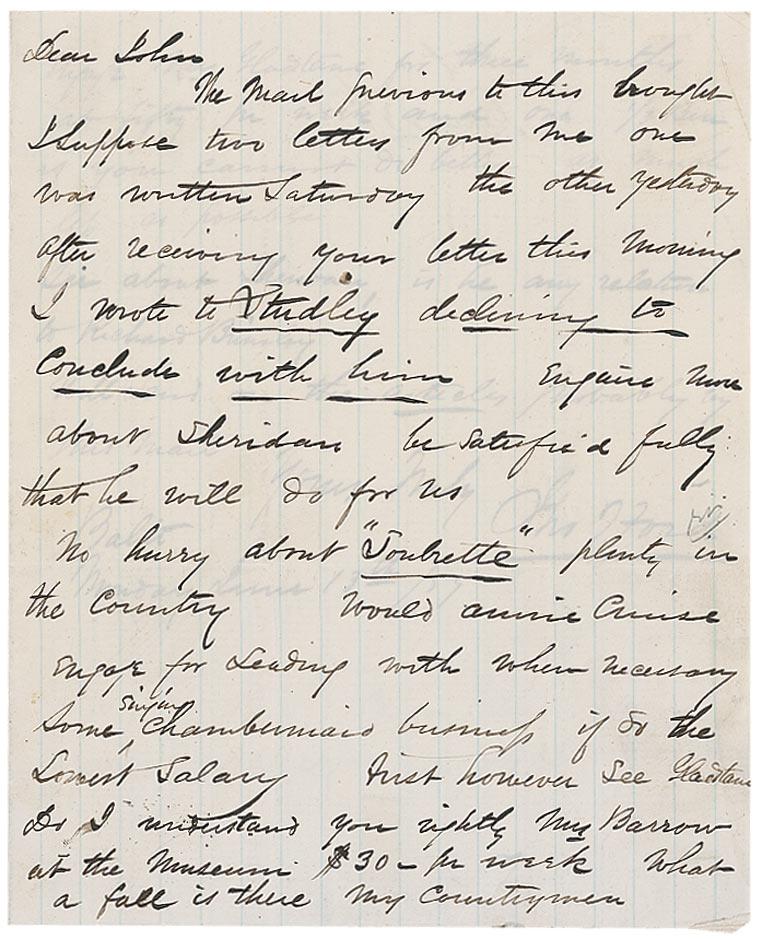 Dear John
The Mail previous to this brought
I suppose two letters from me one
was written Saturday the other yesterday
after receiving your letter this morning
I wrote to Studley declining to
conclude with him Enquire more
about Sheridan be satisfied fully
that he will do for us
No hurry about "Soubrette" plenty in
the Country Would annie Cruise
engage for Leading with when necessary
some singing chambermaid business if so the
Lowest Salary first however See Gladstane
Do I understand you rightly Mrs Barrow
at the Museum $30- pr week What
a fall is there My Countrymen